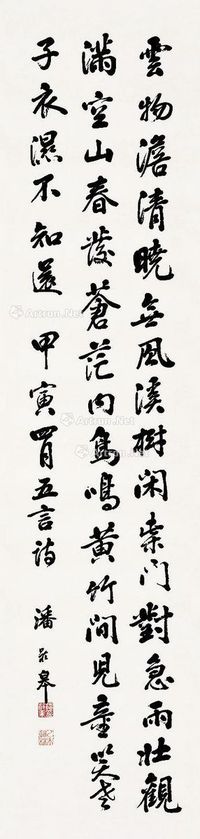 雲物澹清曉無風溪樹閑柴门對急雨壯觀
滿空山春發蒼茫内鳥鳴黃竹間兒童笑老
子衣濕不知還 甲寅四月五言詩 潘齡皋